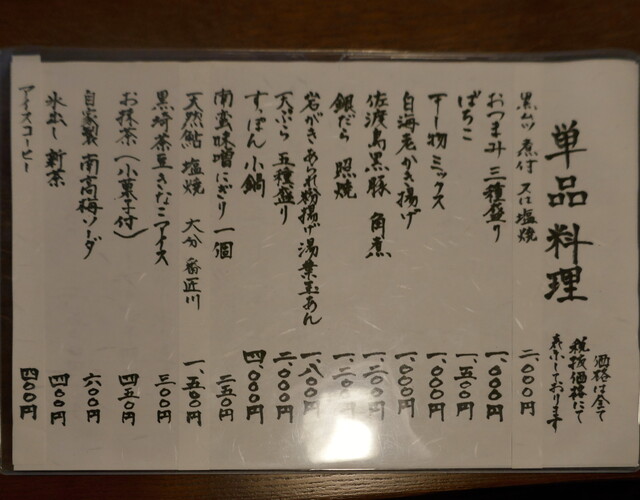 単品料理
価格は全て
税抜価格にて
表示しております
黒ムツ 煮付 又は 塩焼 二、000円
おつまみ 三種盛り 一、000円
ばちこ 一、五00円
干し物ミックス 一、000円
白海老かき揚げ 一、000円
佐渡島黒豚 角煮 一、二00円
銀だら 照焼 一、二00円
岩がきあられ粉揚げ 湯葉玉あん 一、八00円
天ぷら 五種盛り 二、000円
すっぽん小鍋 四、000円
南蛮味噌にぎり 一個 二五0円
天然鮎 塩焼 大分 番匠川 一、五00円
黒埼茶豆きなこアイス 三00円
お抹茶(小菓子付) 四五0円
自家製 南高梅ソーダ 六00円
氷出し 新茶 四00円
アイスコーヒー 四00円